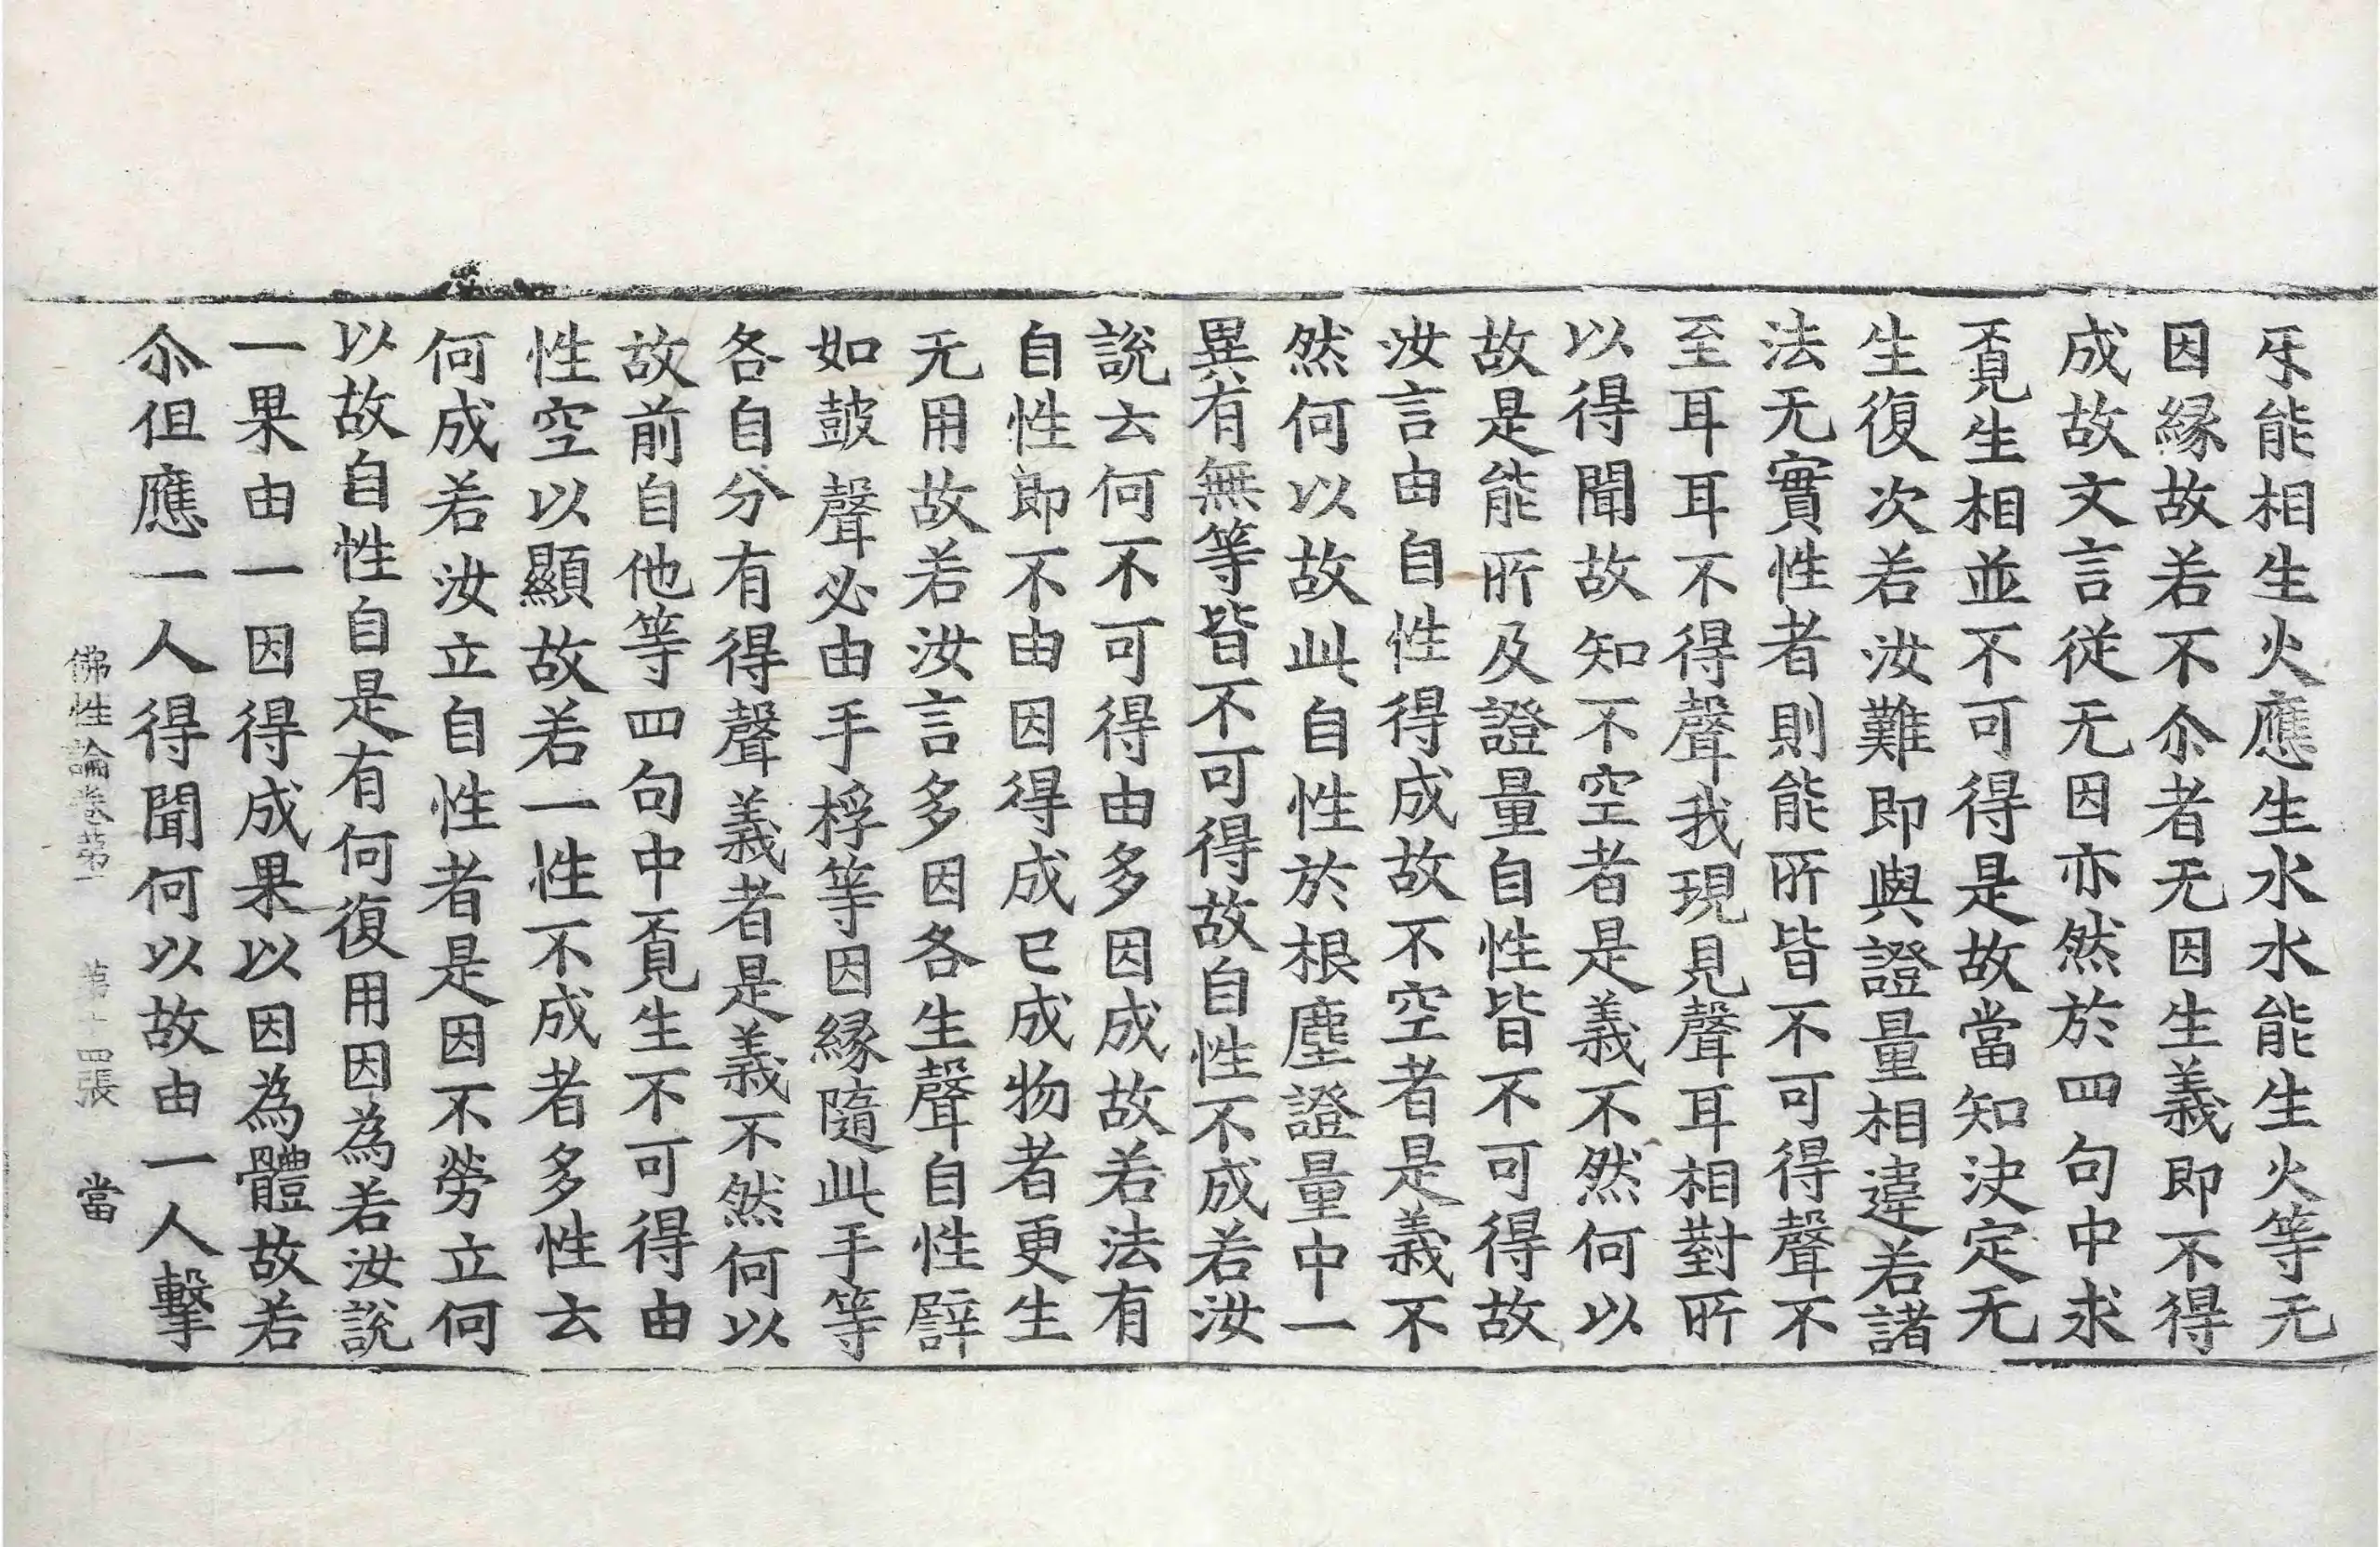 㸦能相生火應生水水能生火等无
因縁故若不尒者无因生義即不得
成故文言從无因亦然於四句中求
覔生相並不可得是故當知決定无
生復次若汝難即與證量相違若諸
法无實性者則能所皆不可得聲不
至耳耳不得聲我現見聲耳相對所
以得聞故知不空者是義不然何以
故是能所及證量自性皆不可得故
汝言由自性得成故不空者是義不
然何以故此自性於根塵證量中一
異有無等皆不可得故自性不成若汝
說去何不可得由多因成故若法有
自性即不由因得成已成物者更生
无用故若汝言多因各生聲自性譬
如鼓聲必由手桴等因縁隨此手等
各自分有得聲義者是義不然何以
故前自他等四句中覔生不可得由
性空以顯故若一性不成者多性去
何成若汝立自性者是因不勞立何
以故自性自是有何復用因為若汝說
一果由一因得成果以因為體故若
尒但應一人得聞何以故由一人擊
佛性論卷第一 第十四張 當